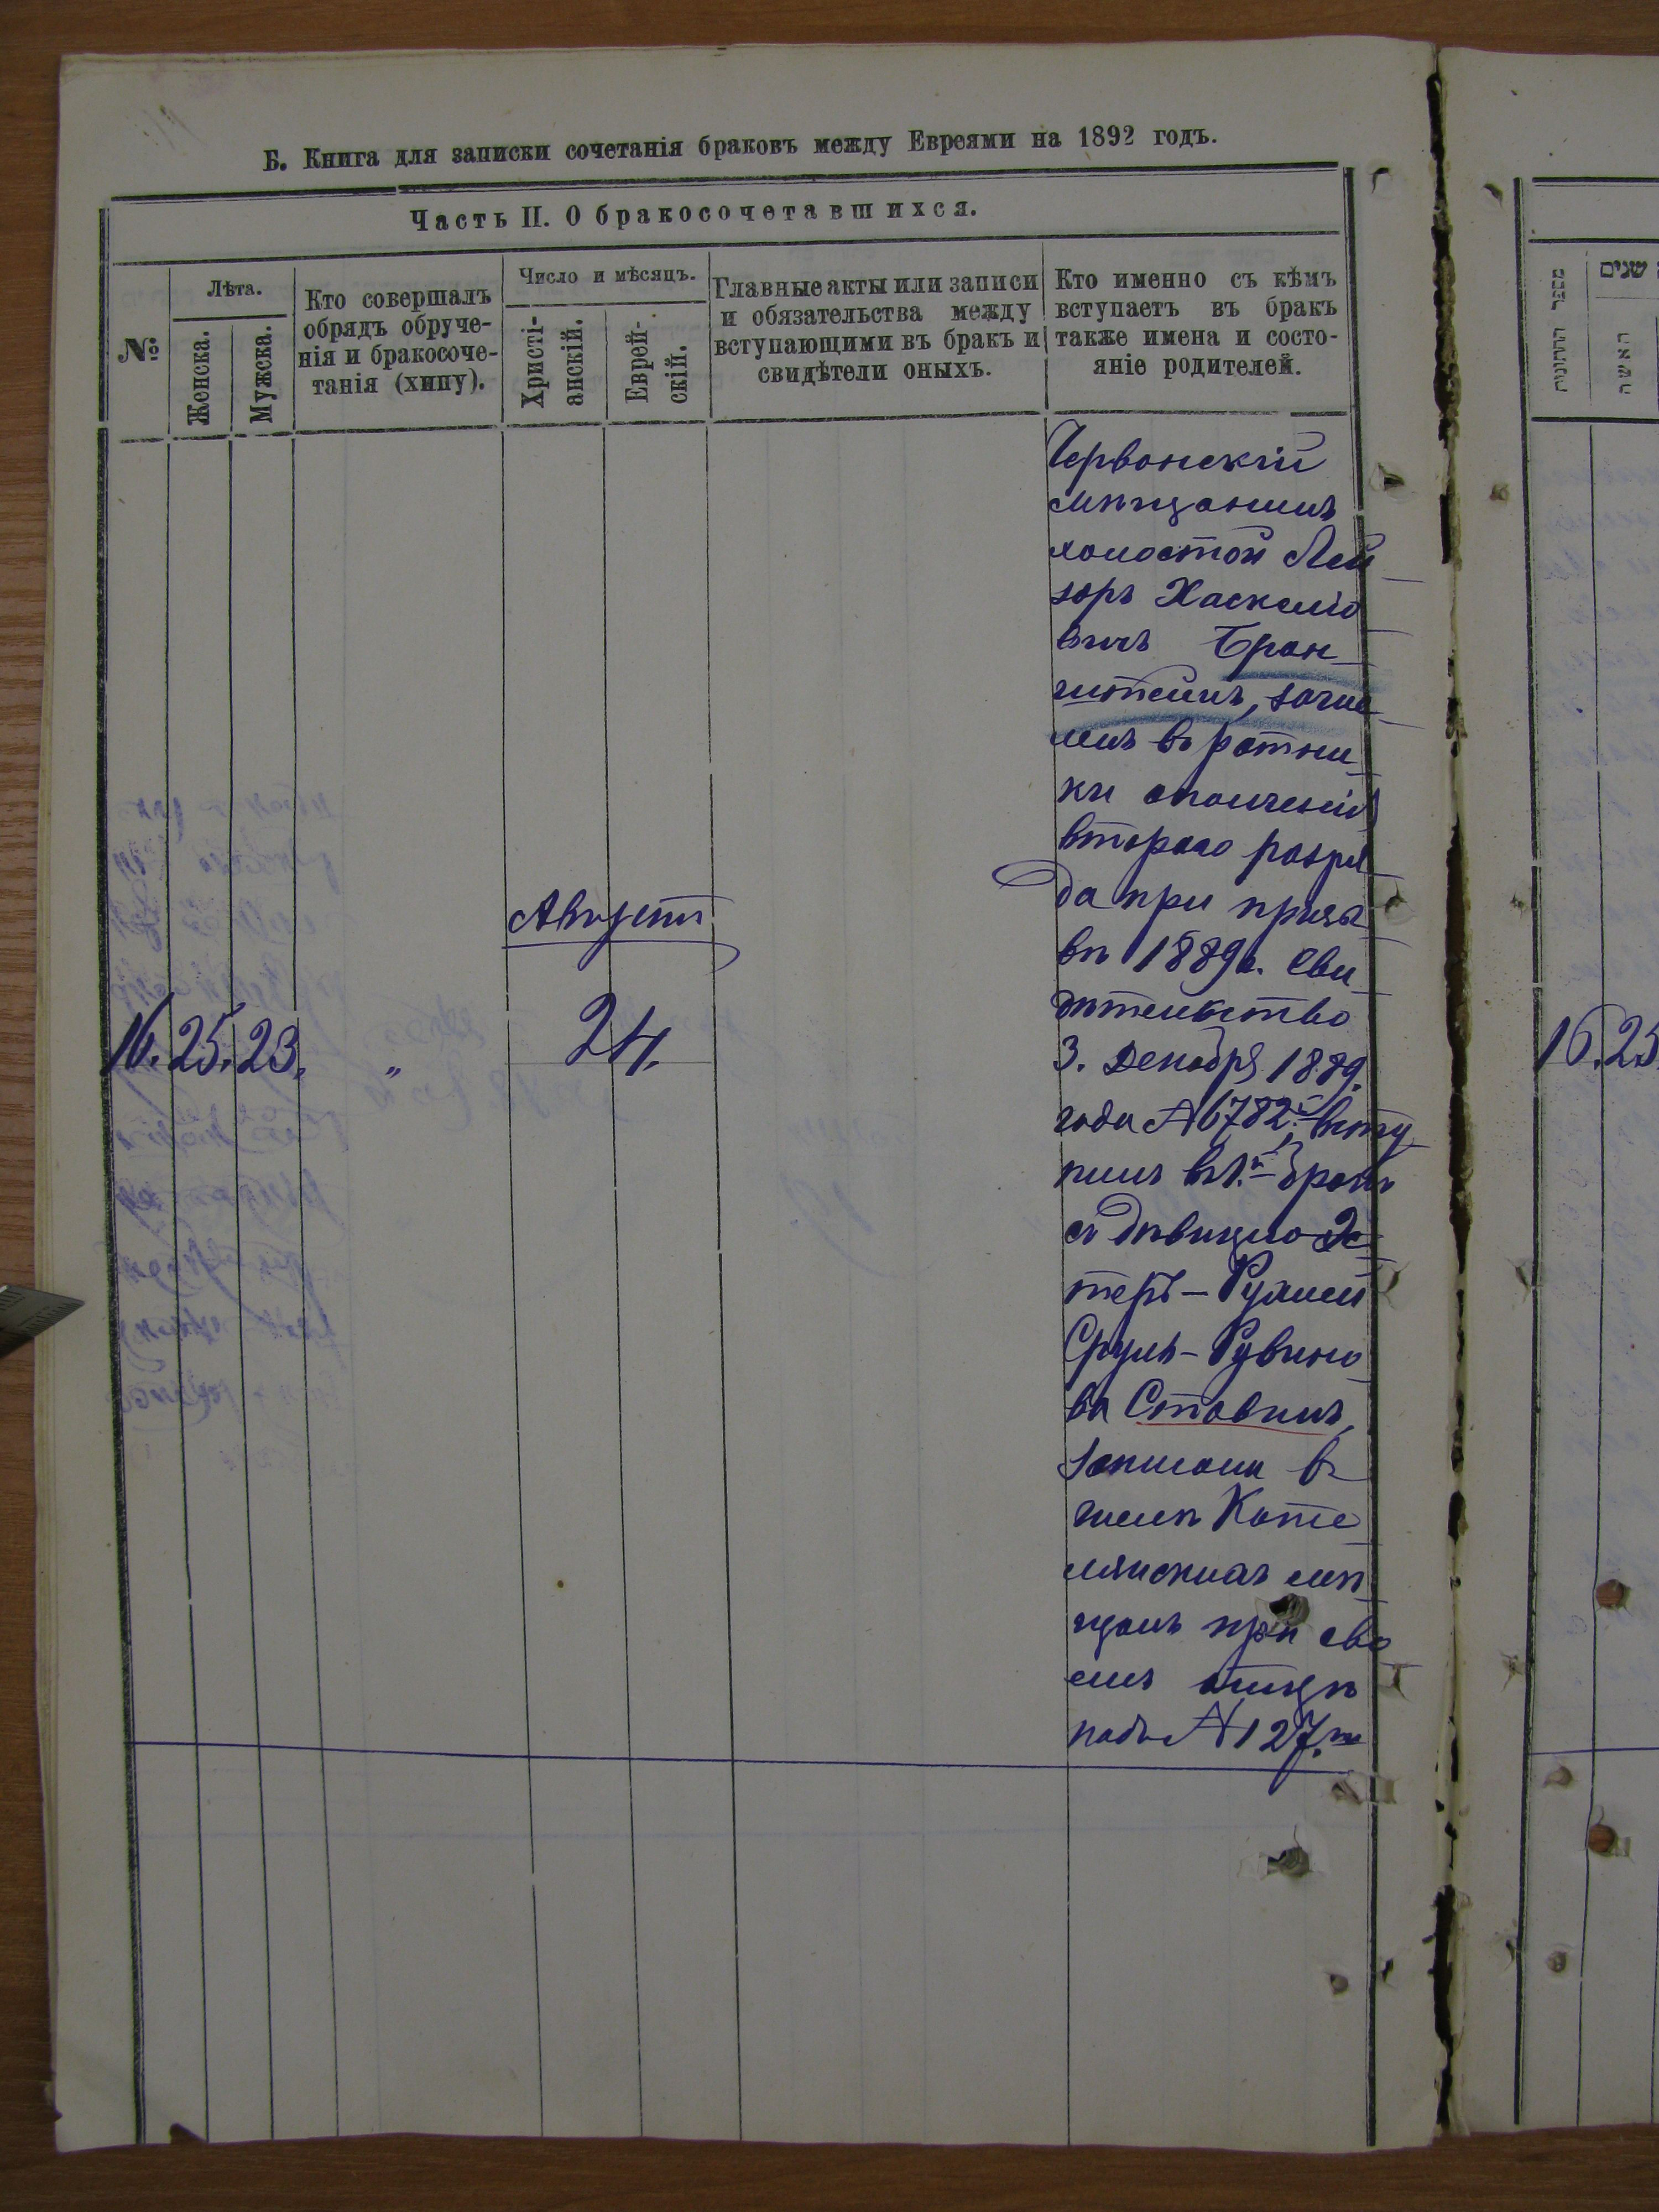 Б. Книга для записки сочетанія браковъ между Евреями на 1892 годъ.
Часть II. О бракосочетавшихся.
№
Лѣта.
Женска.
Мужска.
Кто совершалъ
обрядъ обруче-
нія и бракосоче-
танія (хипу).
Число и мѣсяцъ.
Христі-
анскій.
Еврей-
скій.
Главные акты или записи
и обязательства между
вступающими въ бракъ и
свидѣтели оныхъ.
Кто именно съ кѣмъ
вступаетъ въ бракъ
также имена и состо-
яніе родителей.
Августъ
16. 25. 23. „ 24.
Червонскій
мѣщанинъ
холостой Лей
зоръ Хаскеліо
вичъ Брон
штейнъ, зачис
ленъ въ ратни
ки ополченія
втораго разря
да при призы
вѣ 1889 г. Сви
дѣтельство
3. Декабря 1889.
года № 6782, всту
пилъ въ 1.й бракъ
съ дѣвицею Эс
теръ-Рухлей
Сруль-Рувино
ва Ставинъ,
записана въ
числѣ Коте
лянскихъ мѣ
щанъ при сво
емъ отцѣ
подъ № 127.
מספר החתונות
שנים
האשה
16. 25